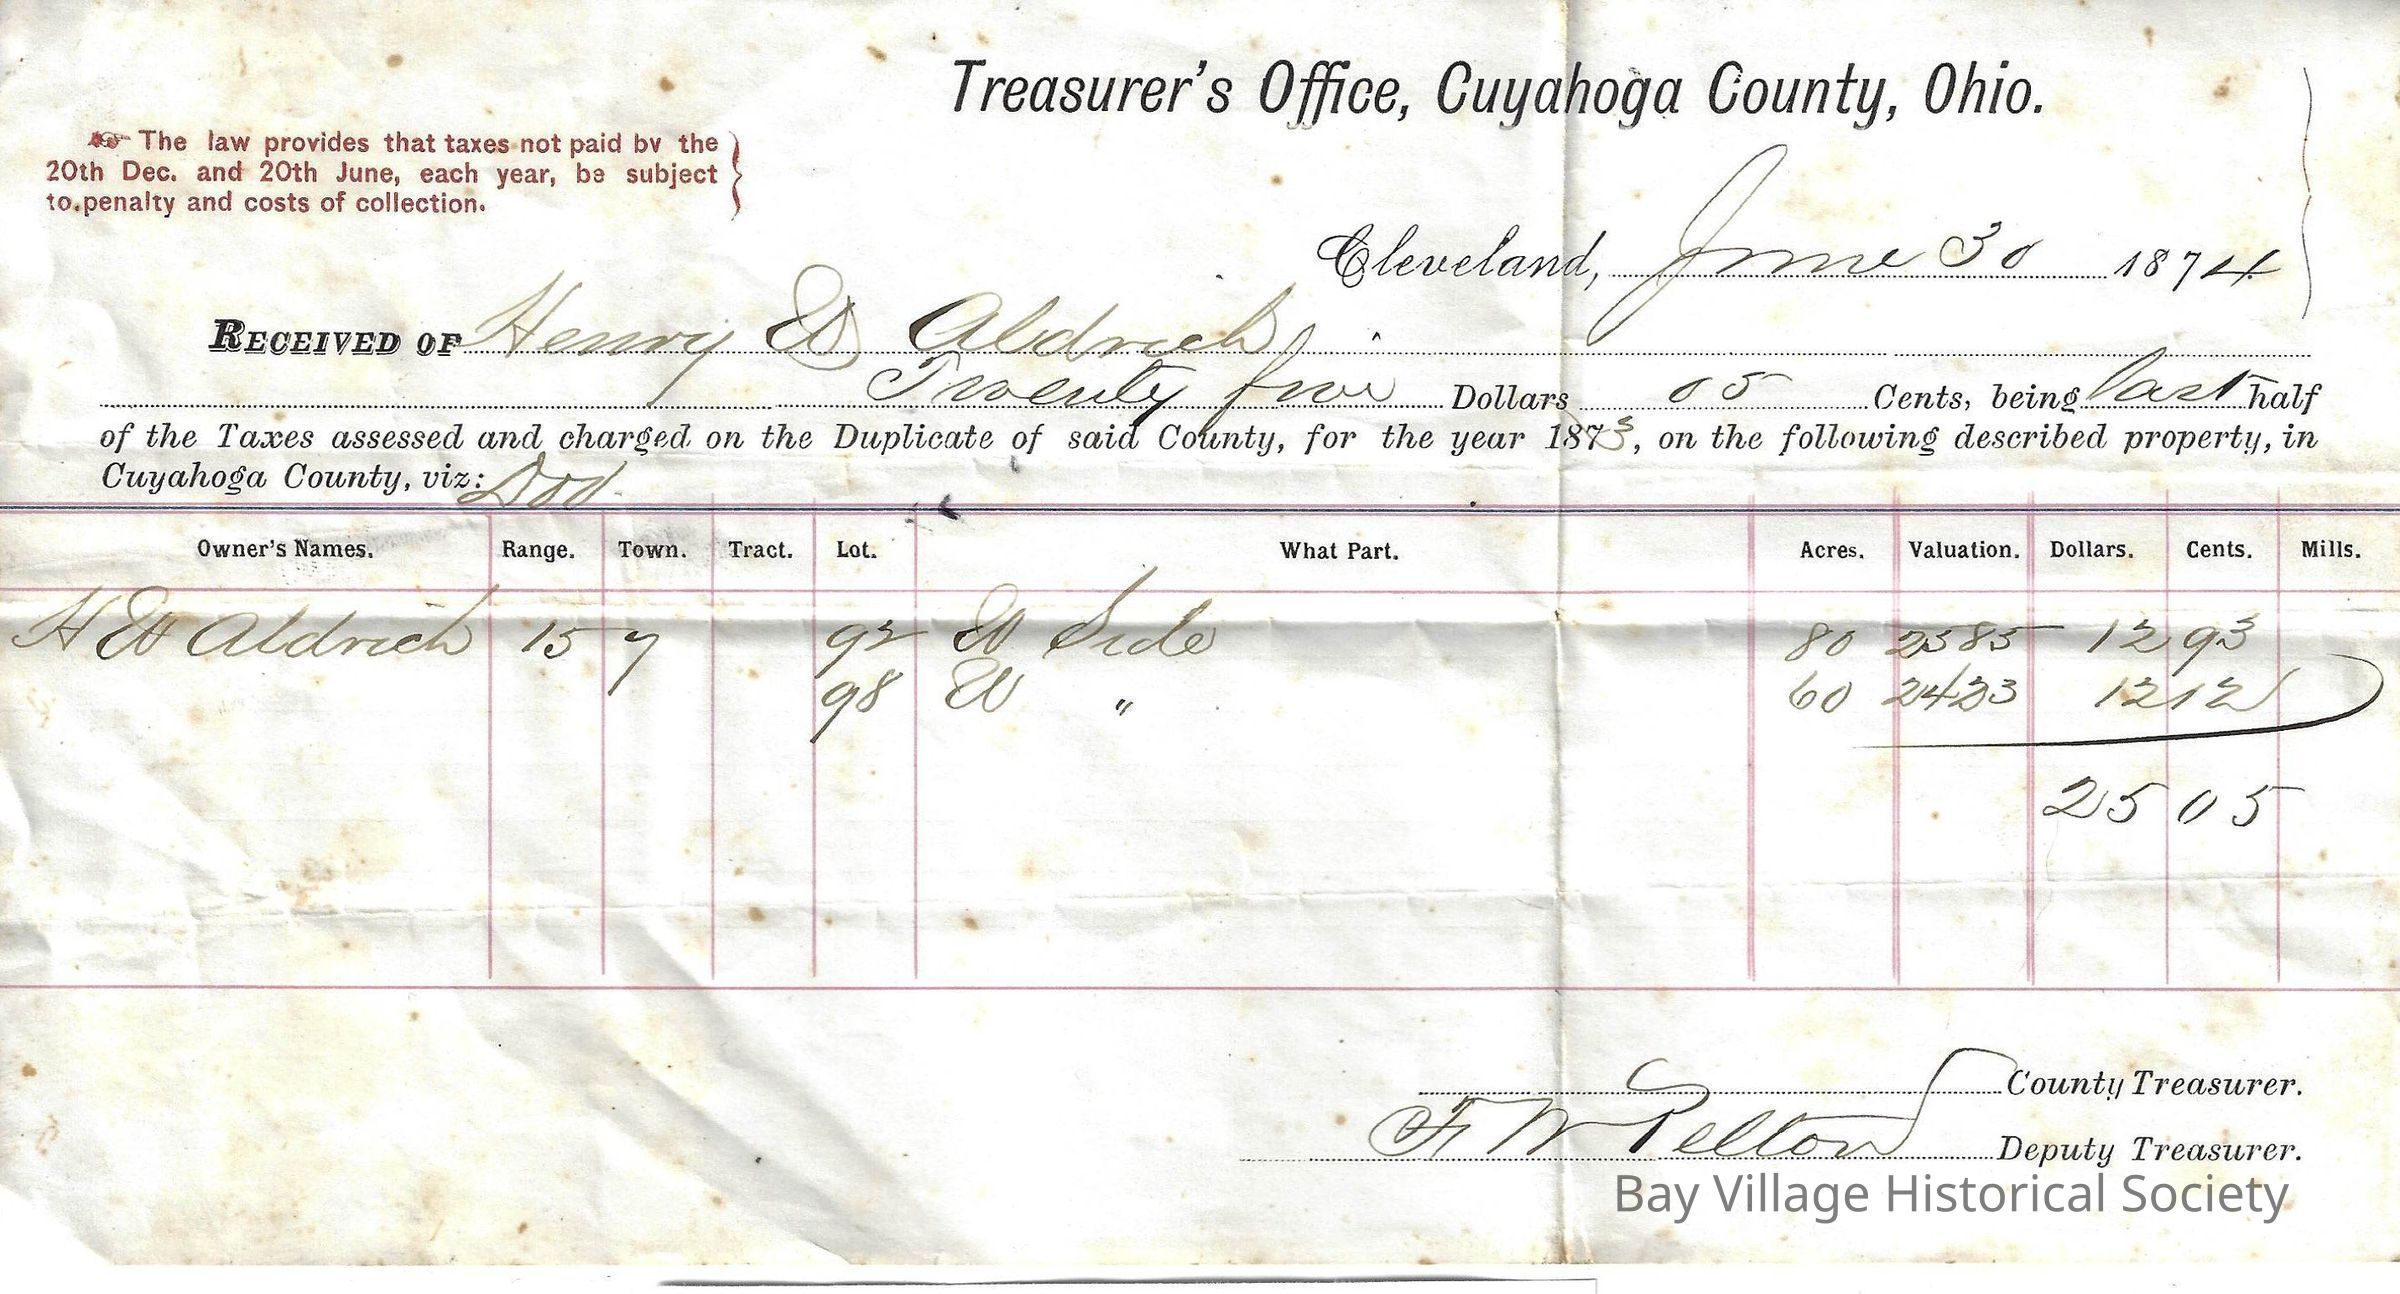 Treasurer's Office, Cuyahoga County, Ohio.
☞ The law provides that taxes not paid by the
20th Dec. and 20th June, each year, be subject
to penalty and costs of collection.
Cleveland, June 30 1874
RECEIVED OF Henry W Aldrich
Twenty five Dollars 05 Cents, being last half
of the Taxes assessed and charged on the Duplicate of said County, for the year 1873, on the following described property, in
Cuyahoga County, viz: Dov.
Owner's Names. Range. Town. Tract. Lot. What Part. Acres. Valuation. Dollars. Cents. Mills.
H W Aldrich 15 7 92 W Side 80 2585 12 93
98 W " 60 2423 12 12
25 05
County Treasurer.
F W Pelton Deputy Treasurer.
Bay Village Historical Society